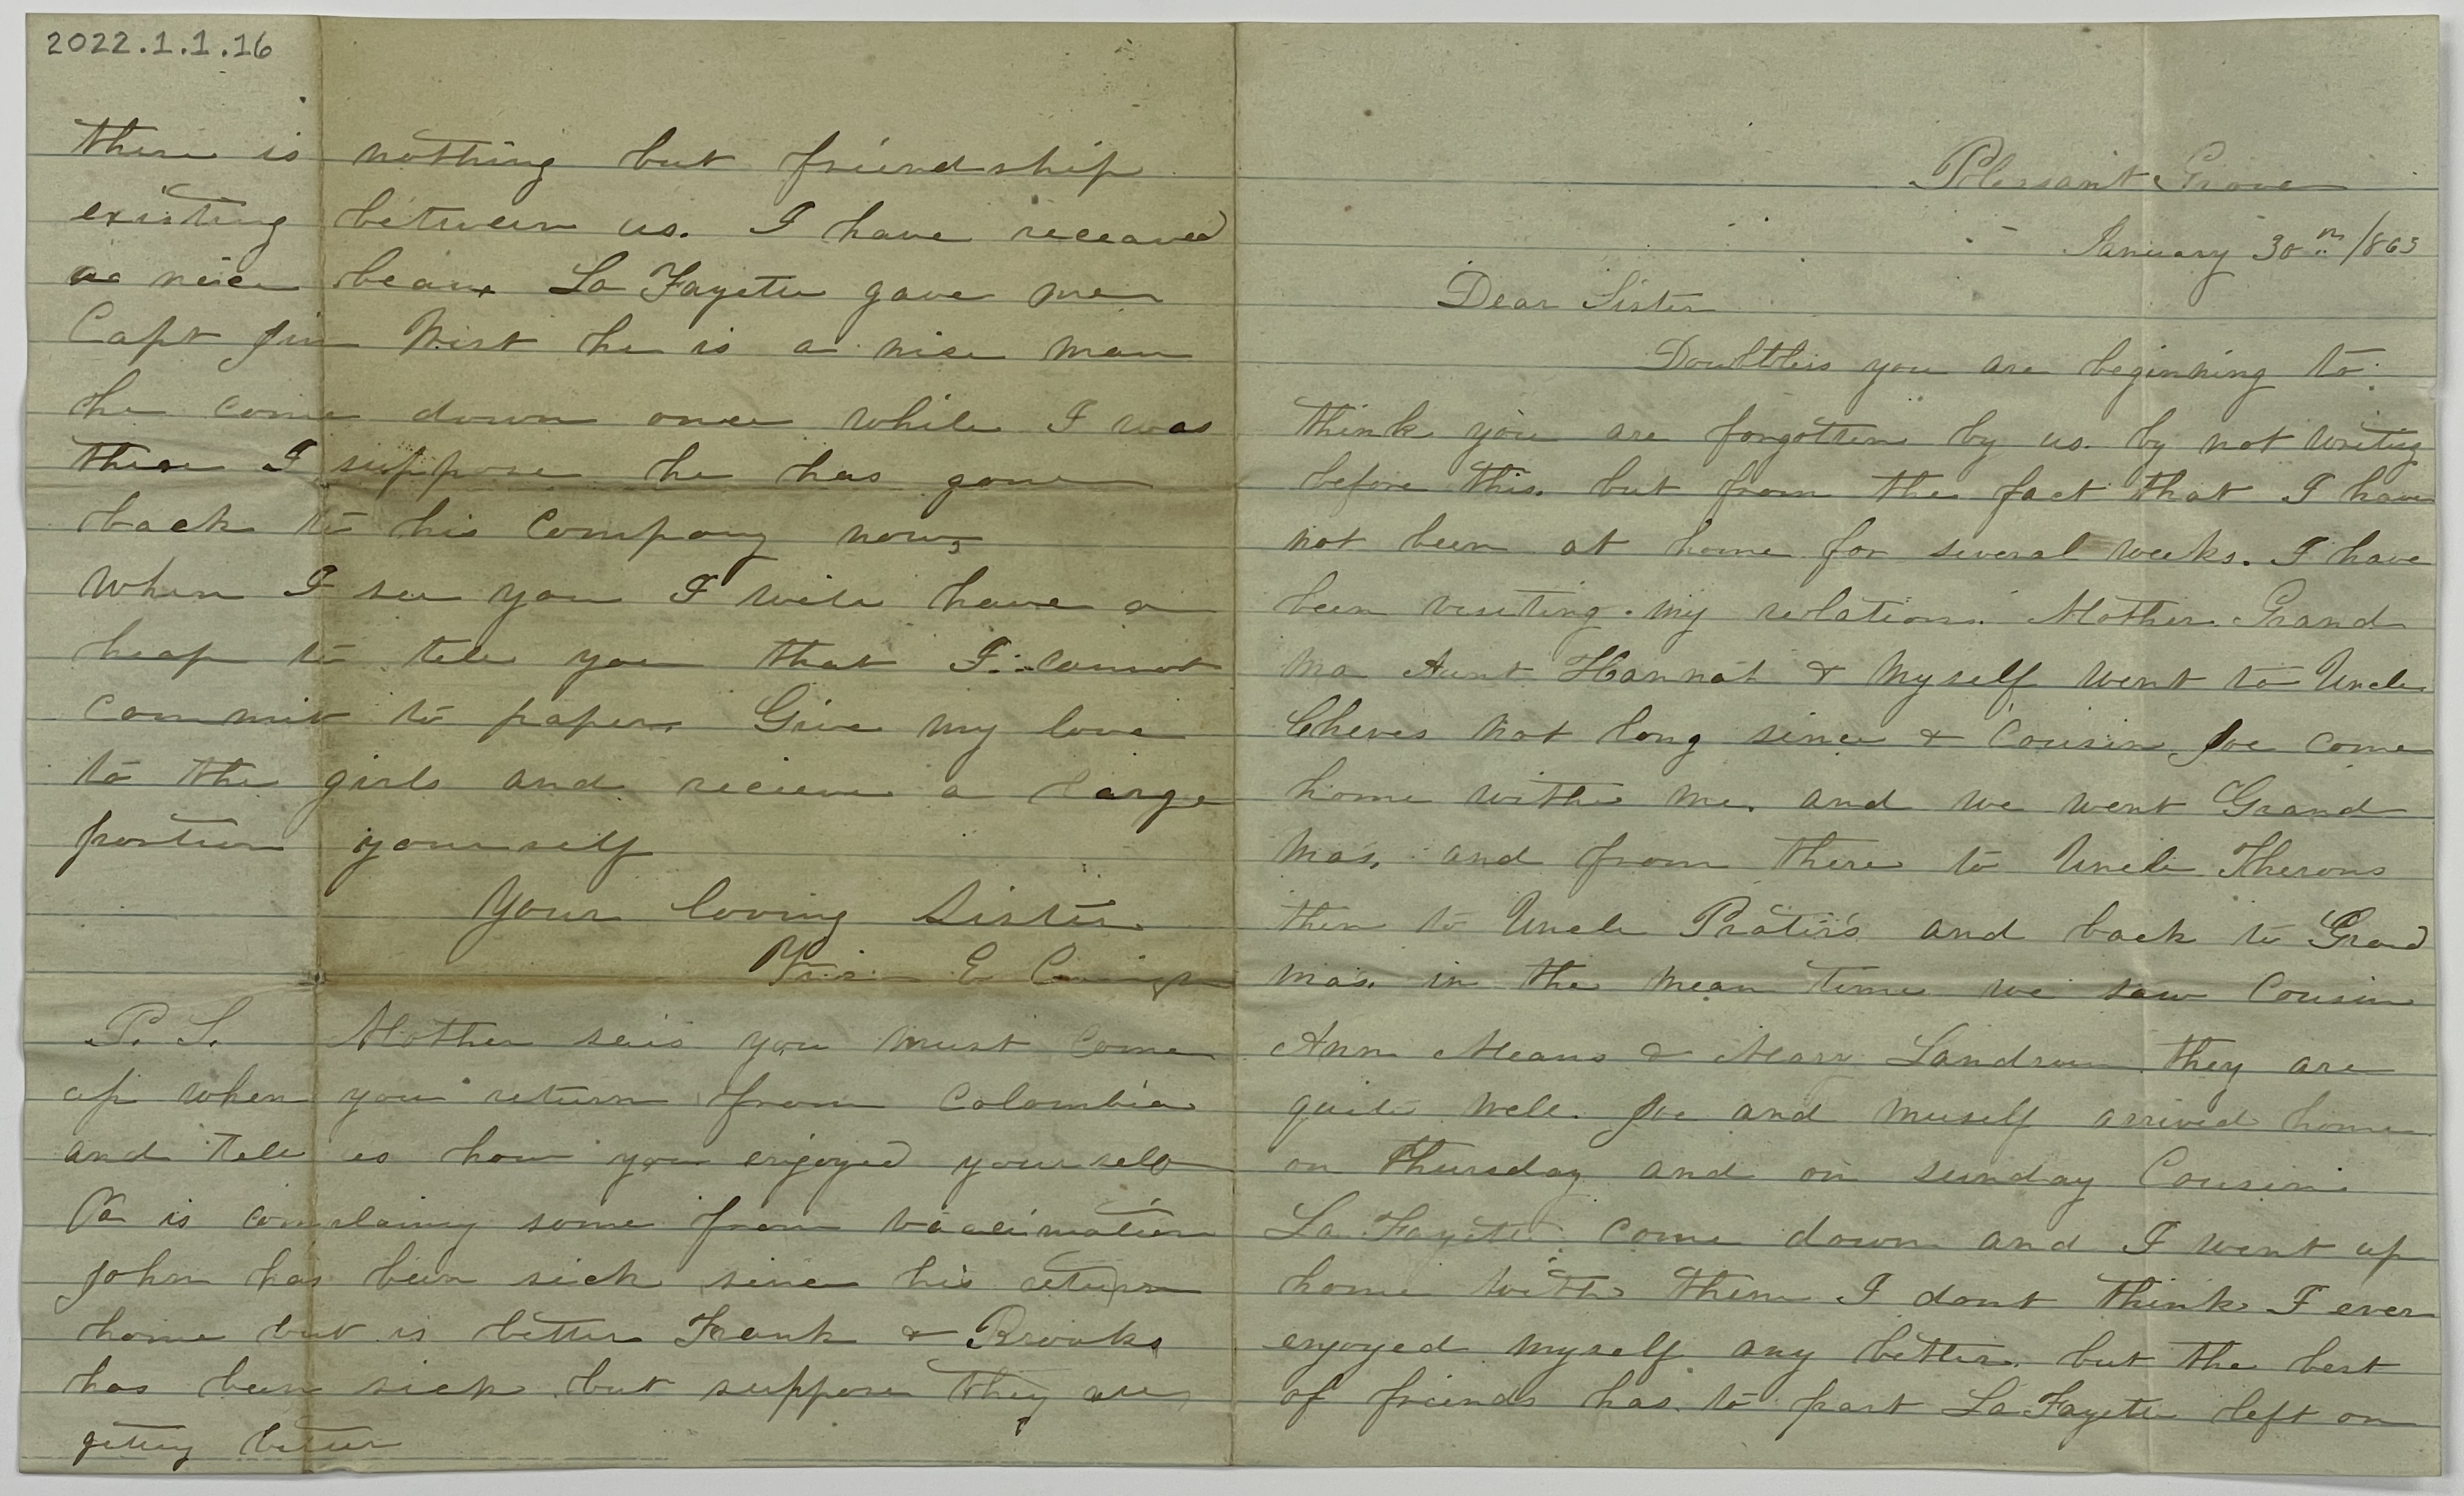 2022.1.1.16
there is nothing but friendship
existing between us. I have receaved
a neice beaux La Fayette gave me
Capt Jim West he is a nice man
he come down once while I was
there I suppose he has gone
back to his Company now,
When I see you I will have a
heap to tell you that I cannot
commit to paper. Give my love
to the girls and recieve a large
portion yourself
Your loving Sister
E
P. S. Mother seis you must come
up when you return from Colombia
and tell us how you enjoyed yourself
Pa is complaing some from vaccination
John has been sick since his return
home but is better Frank & Brooks
has been sick but suppose they are
getting better
Plessant Grove
January 30th /863
Dear Sister
Doubtless you are beginning to
think you are forgotten by us. by not writing
before this. but from the fact that I have
not been at home for several weeks. I have
been visiting my relations. Mother. Grand
ma Aunt Hannah & Myself went to Uncle
Cheves not long since & Cousin Joe come
home withe me. and we went Grand
mas. and from there to Uncle Therons
then to Uncle Prater's and back to Grand
mas. in the mean time we saw Cousin
Ann Means & Mary Landrum they are
quite well. Joe and muself arrived home
on Thursday and on sunday Cousin
La Fayette come down and I went up
home with them I dont think I ever
enjoyed myself any better. but the best
of friends has to part La Fayette left on